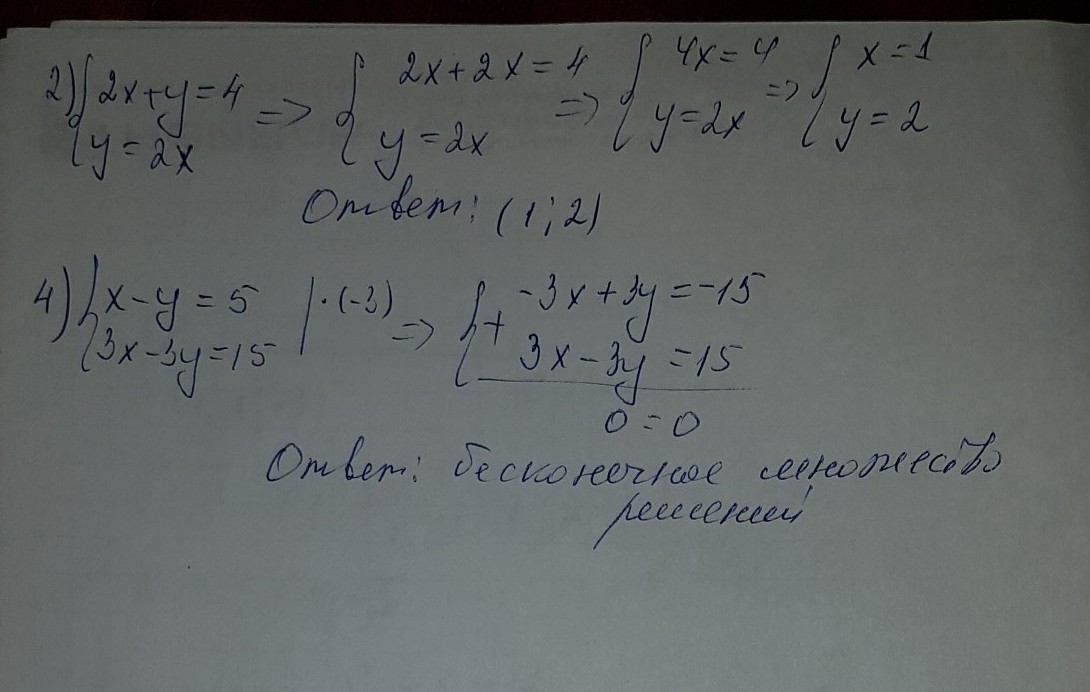 2) { 2x+y=4 => { 2x+2x=4 => { 4x=4 => { x=1
y=2x y=2x y=2x y=2
Ответ: (1; 2)
4) { x-y=5 | ·(-3) => { + -3x+3y=-15
3x-3y=15 3x-3y=15
0=0
Ответ: бесконечное множество
решений